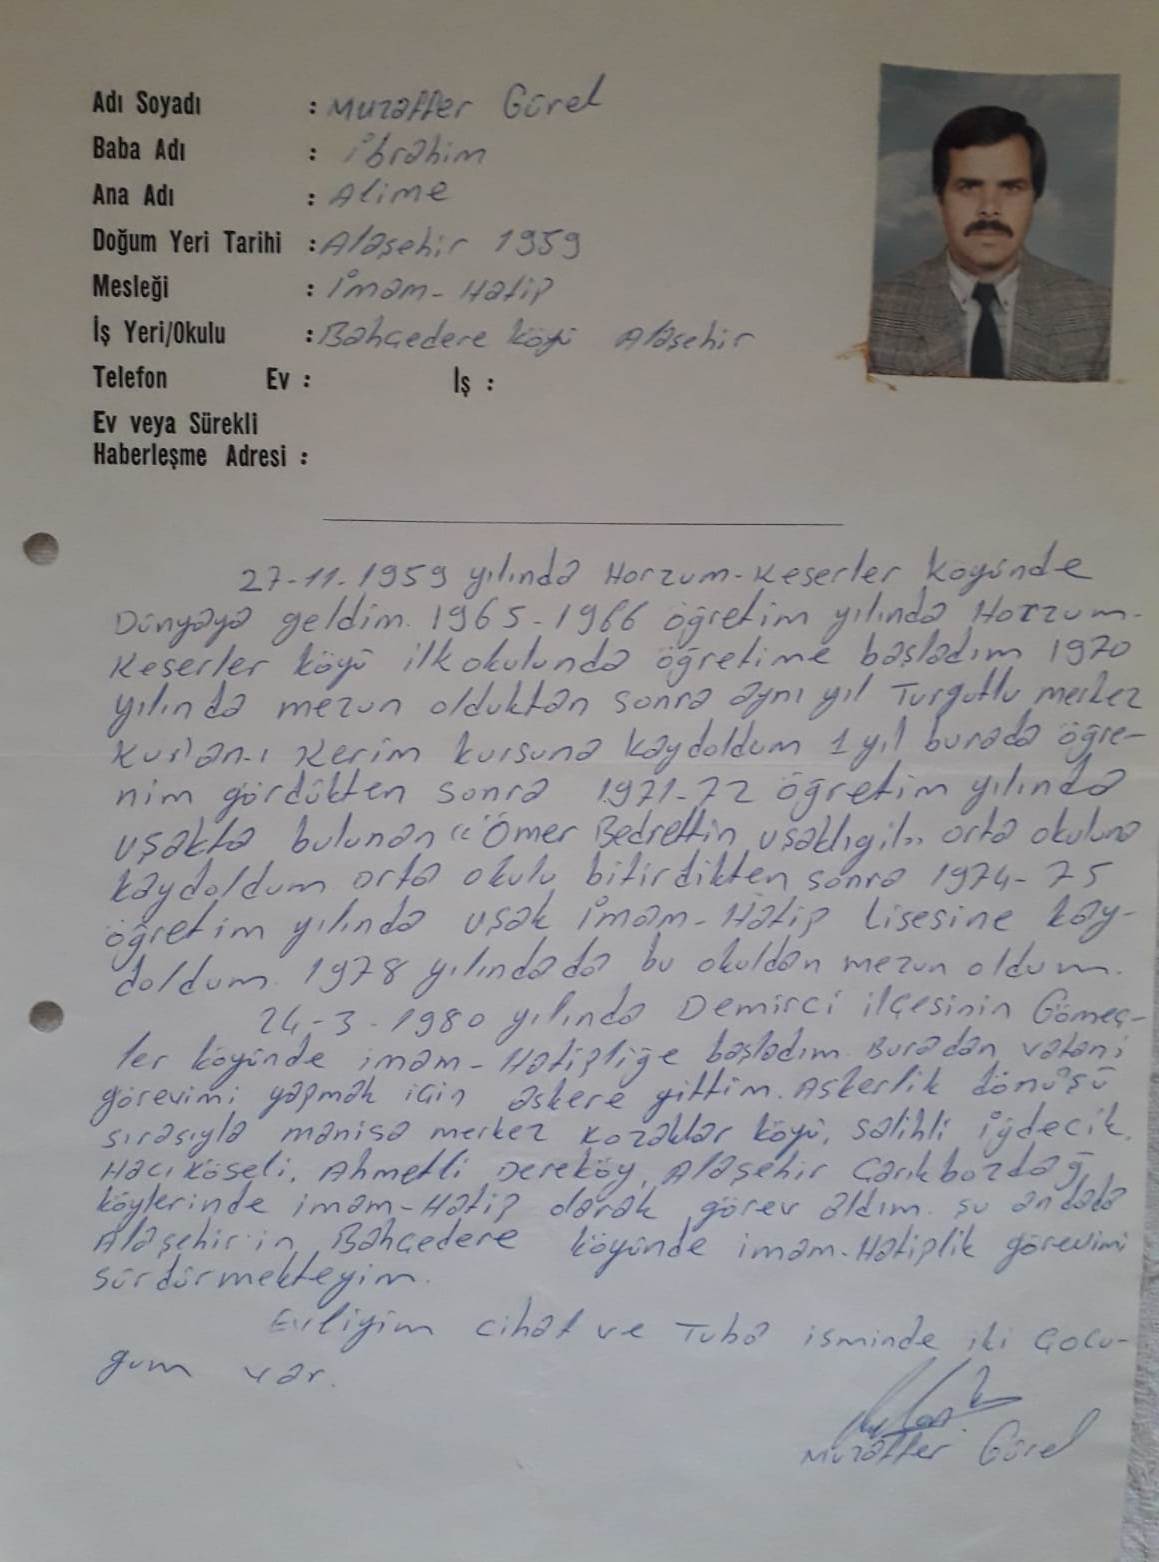 Adı Soyadı : Muzaffer Gürel
Baba Adı : İbrahim
Ana Adı : Alime
Doğum Yeri Tarihi : Alaşehir 1959
Mesleği : İmam-Hatip
İş Yeri/Okulu : Bahçedere köyü Alaşehir
Telefon Ev : İş :
Ev veya Sürekli
Haberleşme Adresi :
27-11-1959 yılında Horzum-Keserler köyünde
Dünyaya geldim. 1965-1966 öğretim yılında Horzum-
Keserler köyü ilkokulunda öğretime başladım 1970
yılında mezun olduktan sonra aynı yıl Turgutlu merkez
Kur'an-ı Kerim kursuna kaydoldum 1 yıl burada öğre-
nim gördükten sonra 1971-72 öğretim yılında
uşakta bulunan "Ömer Bedrettin uşaklıgil,, orta okuluna
kaydoldum orta okulu bitirdikten sonra 1974-75
öğretim yılında uşak imam-Hatip Lisesine kay-
doldum. 1978 yılındada bu okuldan mezun oldum.
24-3-1980 yılında Demirci ilçesinin Gömeç-
ler köyünde imam-Hatipliğe başladım. Buradan vatani
görevimi yapmak için askere gittim. Askerlik dönüşü
sırasıyla manisa merkez kozaklar köyü, salihli iğdecik,
Hacı Köseli, Ahmetli Dereköy, Alaşehir Çarıkbozdağ
köylerinde imam-Hatip olarak görev aldım. şu andada
Alaşehir'in Bahçedere köyünde imam-Hatiplik görevimi
sürdürmekteyim.
Evliyim cihat ve Tuba isminde iki çocu-
ğum var.
Muzaffer Gürel